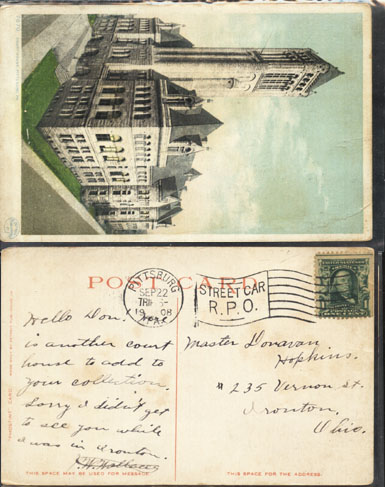 POST CARD
PITTSBURG
SEP 22
1908
STREET CAR
R.P.O.
Hello Don. Here
is another court
house to add to
your collection.
Sorry I didn't get
to see you while
I was in Ironton.
Master Donavan
Hopkins.
#235 Vernon St.
Ironton,
Ohio.
THIS SPACE MAY BE USED FOR MESSAGE.
THIS SPACE IS FOR THE ADDRESS.